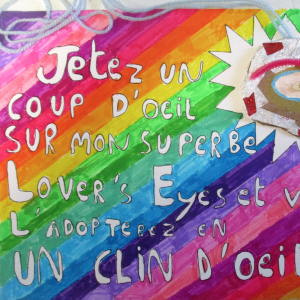 Jetez un
coup d'oeil
sur mon superbe
Lover's Eyes et v
l'adopterez en
un clin d'oeil